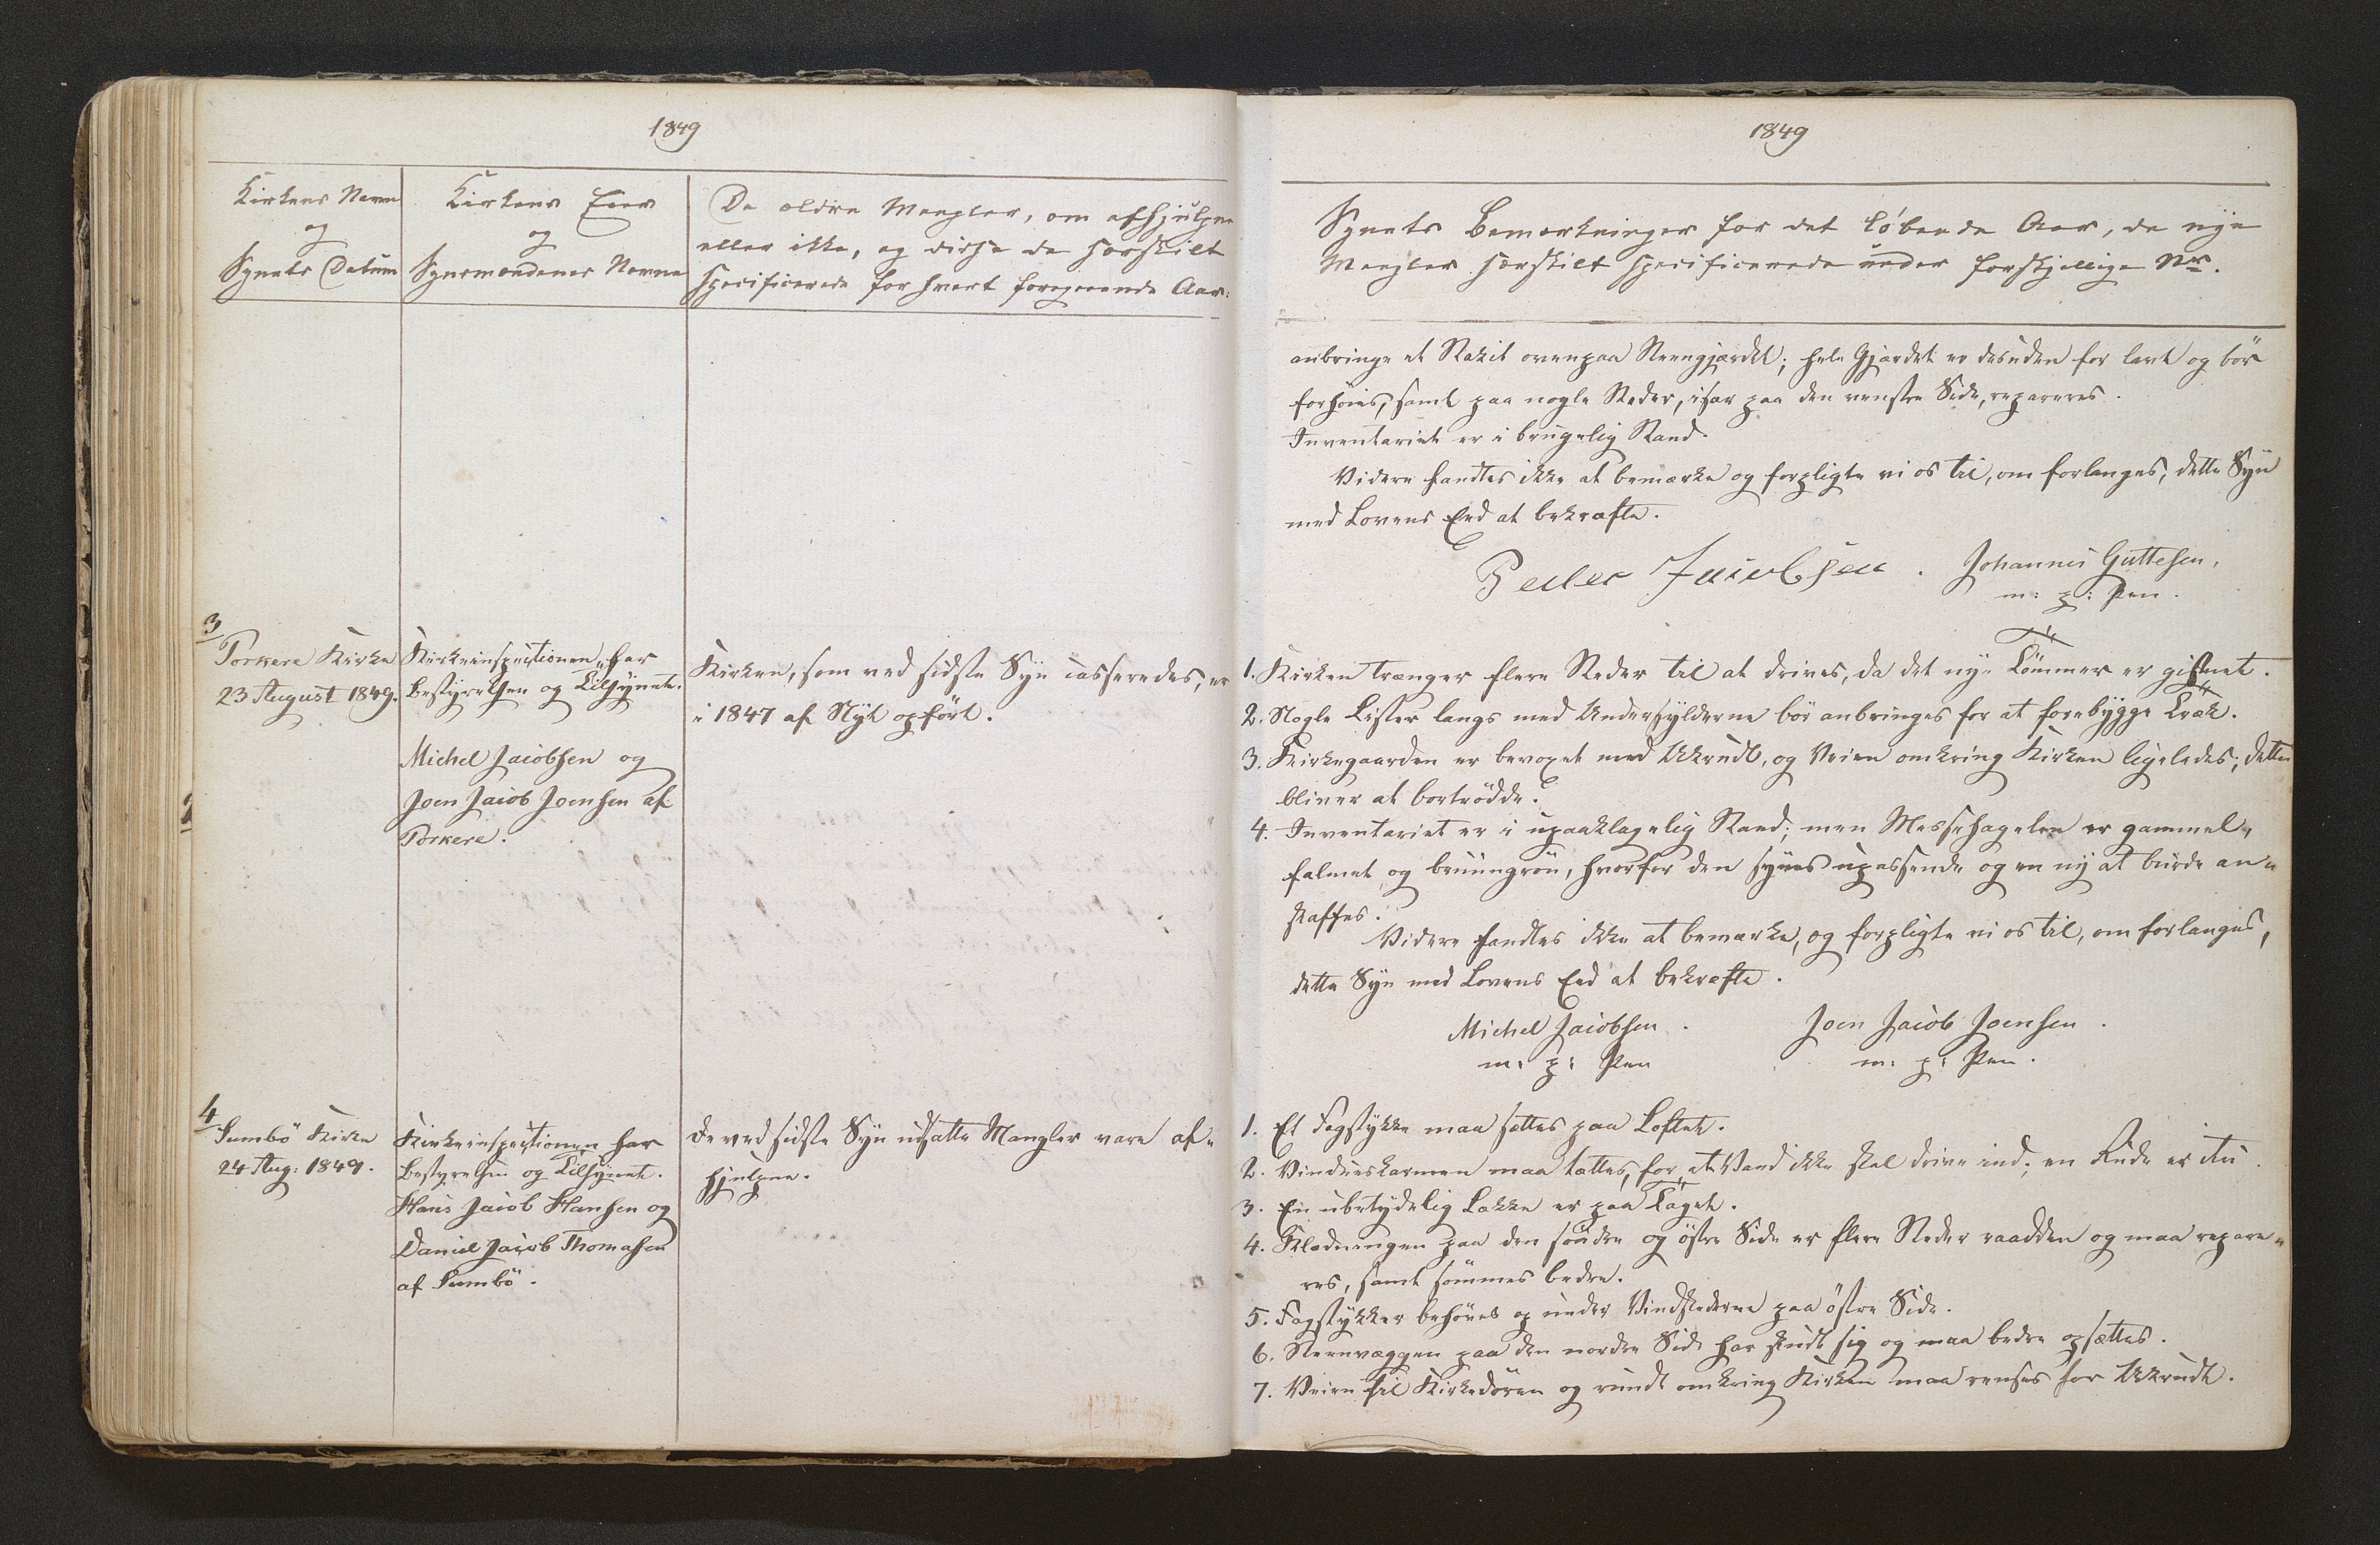 1849
Kirkens Navn
og
Synets Datum
Kirkens Eier
og
Synsmændenes Navne
De ældre Mangler, om afhjulpne
eller ikke, og disse de særskilt
specificerede for hvert foregaaende Aar.
3
Porkere Kirke
23 August 1849.
Kirkeinspectionen har
Bestyrelsen og Tilsynet.
Michel Jacobsen og
Joen Jacob Joensen af
Porkere.
Kirken, som ved sidste Syn casseredes, er
i 1847 af Nyt opført.
4
Sumbö Kirke
24 Aug: 1849.
Kirkeinspectionen har
Bestyrelsen og Tilsynet.
Hans Jacob Hansen og
Daniel Jacob Thomasen
af Sumbö.
De ved sidste Syn udsatte Mangler vare af-
hjulpne.
1849
Synets Bemærkninger for det løbende Aar, de nye
Mangler særskilt specificerede under forskjellige Nr.
anbringe et Stakit ovenpaa Steengjærdet; hele Gjærdet er desuden for lavt og bör
forhöies, samt paa nogle Steder, især paa den venstre Side, repareres.
Inventariet er i brugelig Stand.
Videre fandtes ikke at bemærke og forpligte vi os til, om forlanges, dette Syn
med Lovens Eed at bekræfte.
Peder Jacobsen. Johannes Guttesen,
m: p: Pen.
1. Kirken trænger flere Steder til at drives, da det nye Tömmer er gistnet.
2. Nogle Lister langs med Undersylderne bör anbringes for at forebygge Træk.
3. Kirkegaarden er bevoxet med Ukrudt, og Veien omkring Kirken ligeledes; dette
bliver at bortrödde.
4. Inventariet er i upaaklagelig Stand; men Messehagelen er gammel,
falmet og bruungrön, hvorfor den synes upassende og en ny at burde an-
skaffes.
Videre fandtes ikke at bemærke, og forpligte vi os til, om forlanges,
dette Syn med Lovens Eed at bekræfte.
Michel Jacobsen. Joen Jacob Joensen.
m: p: Pen m: p: Pen.
1. Et Fagstykke maa sættes paa Loftet.
2. Vindueskarmen maa tættes, for at Vand ikke skal drive ind; en Rude er itu.
3. En ubetydelig Lække er paa Taget.
4. Klædningen paa den söndre og östre Side er flere Steder raadden og maa repare-
res, samt sömmes bedre.
5. Fagstykker behöves op under Vindskederne paa östre Side.
6. Steenvæggen paa den nordre Side har skudt sig og maa bedre opsættes.
7. Veien til Kirkedören og rundt omkring Kirken maa renses for Ukrudt.